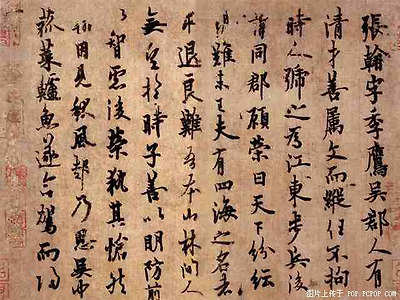 張翰字季鷹吳郡人有
清才善屬文而縱任不拘
時人號之為江東步兵後
謂同郡顧榮曰天下紛紜
禍難未已夫有四海之名者
求退良難吾本山林間人
無望於時子善以明防前
以智慮後榮執其愴然
翰因見秋風起乃思吳中
菰菜鱸魚遂命駕而歸
图片上传于 POP.PCPOP.COM